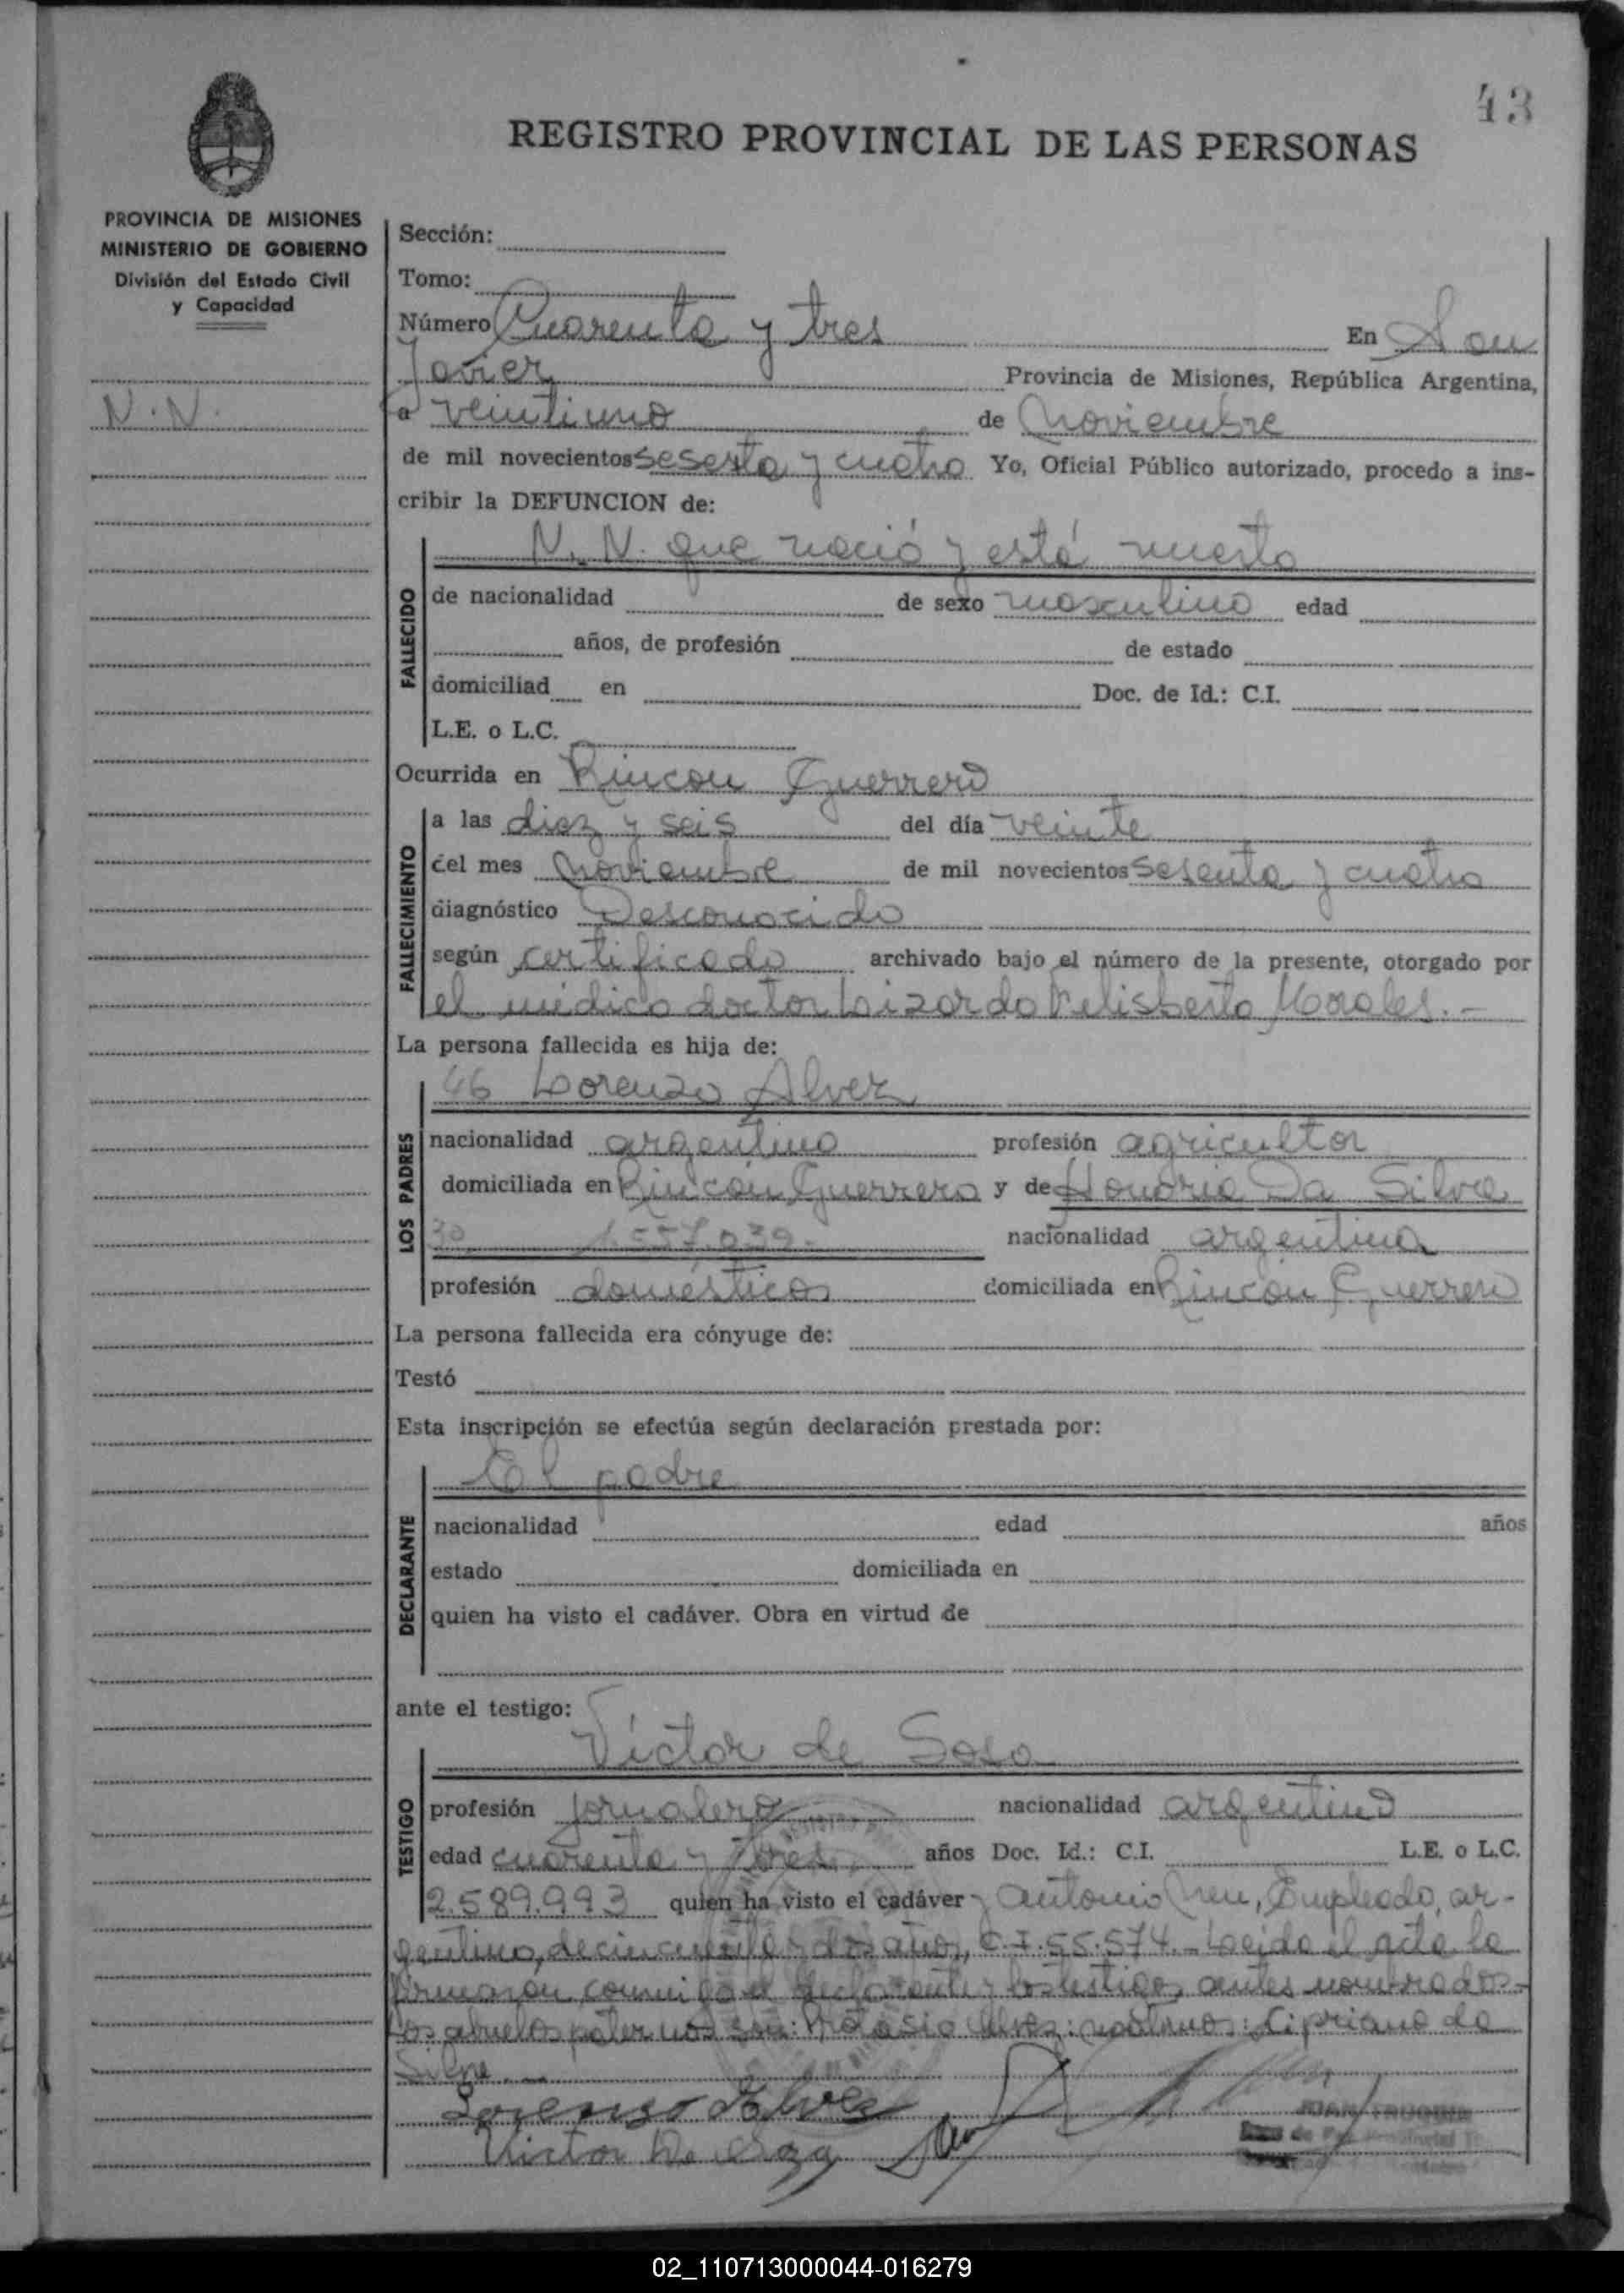 43
REGISTRO PROVINCIAL DE LAS PERSONAS
PROVINCIA DE MISIONES
MINISTERIO DE GOBIERNO
División del Estado Civil
y Capacidad
N. N.
Sección:
Tomo:
Número Cuarenta y tres En San
Javier Provincia de Misiones, República Argentina,
a veintiuno de Noviembre
de mil novecientos sesenta y cuatro Yo, Oficial Público autorizado, procedo a ins-
cribir la DEFUNCION de:
N. N. que nació y está muerto
FALLECIDO
de nacionalidad de sexo masculino edad
años, de profesión de estado
domiciliad en Doc. de Id.: C.I.
L.E. o L.C.
Ocurrida en Rincon Guerrero
FALLECIMIENTO
a las diez y seis del día veinte
del mes Noviembre de mil novecientos sesenta y cuatro
diagnóstico Desconocido
según certificado archivado bajo el número de la presente, otorgado por
el médico doctor Lizardo Felisberto Morales. -
La persona fallecida es hija de:
46 Lorenzo Alvez
LOS PADRES
nacionalidad argentino profesión agricultor
domiciliada en Rincón Guerrero y de Honoria Da Silva
30 1.557.039.- nacionalidad argentina
profesión domésticos domiciliada en Rincón Guerrero
La persona fallecida era cónyuge de:
Testó
Esta inscripción se efectúa según declaración prestada por:
El padre
DECLARANTE
nacionalidad edad años
estado domiciliada en
quien ha visto el cadáver. Obra en virtud de
ante el testigo:
Víctor de Soso
TESTIGO
profesión jornalero nacionalidad argentino
edad cuarenta y tres años Doc. Id.: C.I. L.E. o L.C.
2.589.993 quien ha visto el cadáver y Antonio Empleado, ar-
gentino, de cincuenta y dos años, C.I. 55.574.- Leida el acta la
firmaron conmigo el declarante y los testigos antes nombrados.-
Los abuelos paternos son: Protasio Alvez; maternos: Cipriano da
Silva.-
Lorenso Alves
Victor De Soza
JUAN
de Paz
02_110713000044-016279